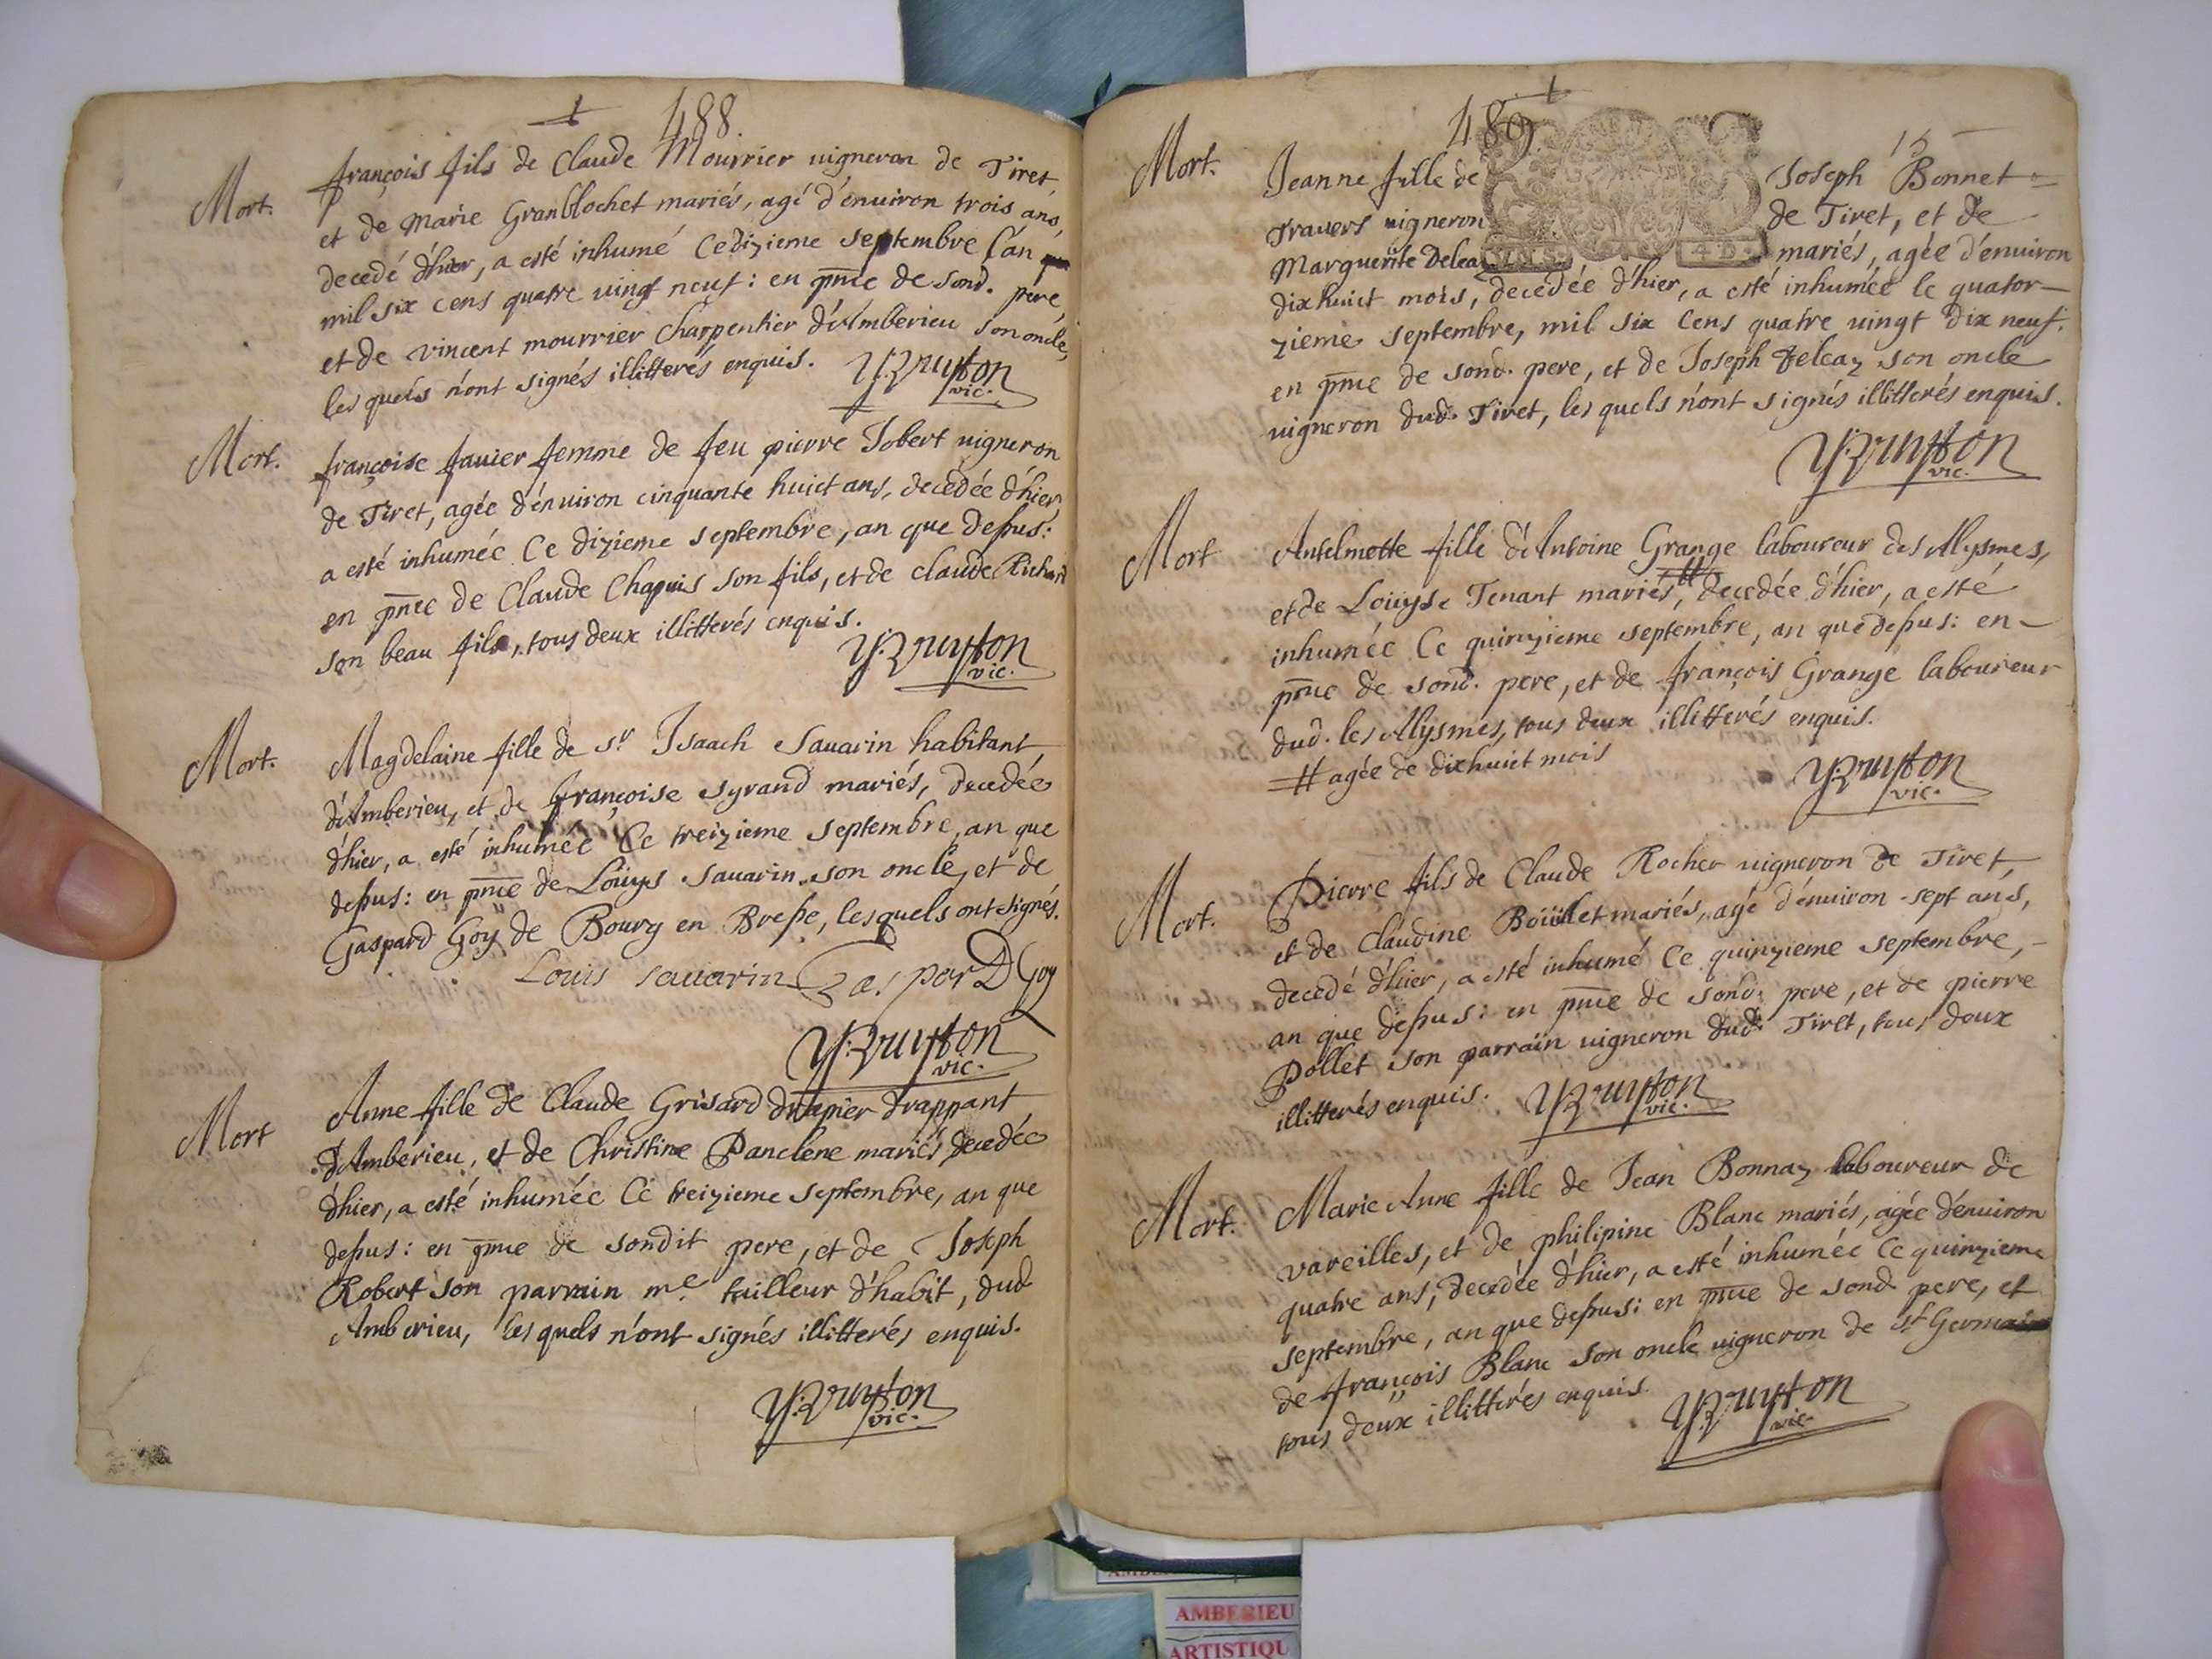 488.
Mort.
françois fils de Claude Mourrier uigneron de Tiret,
et de Marie Granblochet mariés, agé d'énuiron trois ans,
decedé d'hier, a esté inhumé Cedizieme Septembre l'an
mil six cens quatre uingt neuf: en pnce de sond. pere,
et de vincent mourrier Charpentier d'Amberieu son oncle,
les quels n'ont signés illitterés enquis.
vic.
Mort.
françoise fauier femme de feu pierre Jobert uigneron
de Tiret, agée d'énuiron cinquante huict ans, decédée d'hier,
a esté inhumée Ce dizieme septembre, an que depus:
en pnce de Claude Chapuis son fils, et de claude Richard
son beau fils, tous deux illitterés enquis.
vic.
Mort.
Magdelaine fille de Sr Isaach Sauarin habitant
d'Amberieu, et de françoise Syrand mariés, decedée
d'hier, a esté inhumée Ce treizieme Septembre, an que
depus: en pnce de Loüys Sauarin son oncle, et de
Gaspard Goy de Bourg en Brepe, lesquels ont signés.
Louis sauarin Gaspard Goy
vic.
Mort
Anne fille de Claude Grisard drapier drappant
d'Amberieu, et de Christine Panclene mariés decedée
d'hier, a esté inhumée Ce treizieme septembre, an que
depus: en pnce de sondit pere, et de Joseph
Robert son parrain me. tailleur d'habit, dud
Amberieu, les quels n'ont signés illitterés enquis.
vic.
489
13
Mort.
Jeanne fille de Joseph Bonnet
Trauers uigneron de Tiret, et de
Marguerite Deleaz mariés, agée d'énuiron
dixhuict mois, decedée d'hier, a esté inhumée le quator-
zieme septembre, mil six cens quatre uingt dix neuf.
en pnce de sond. pere, et de Joseph Deleaz son oncle
uigneron dud. Tiret, les quels n'ont signés illitterés enquis.
vic.
Mort
Antelmette fille d'Antoine Grange laboureur des Allysmes,
et de Loüyse Tenant mariés, # decedée d'hier, a esté
inhumée Ce quinzieme septembre, an que depus: en
pnce de sond. pere, et de françois Grange laboureur
dud. les Allysmes, tous deux illitterés enquis.
# agée de dixhuict mois
vic.
Mort.
Pierre fils de Claude Rocher uigneron de Tiret,
et de Claudine Boüillet mariés, agé d'énuiron sept ans,
decedé d'hier, a esté inhumé Ce quinzieme septembre,
an que depus: en pnce de sond. pere, et de pierre
Pollet son parrain uigneron dud. Tiret, tous deux
illitterés enquis.
vic.
Mort.
Marie Anne fille de Jean Bonnaz laboureur de
vareilles, et de philipine Blanc mariés, agée d'énuiron
quatre ans, decedée d'hier, a esté inhumée Ce quinzieme
septembre, an que depus: en pnce de sond. pere, et
de françois Blanc son oncle uigneron de St Germain
tous deux illitterés enquis.
vic.
AMBERIEU
ARTISTIQU